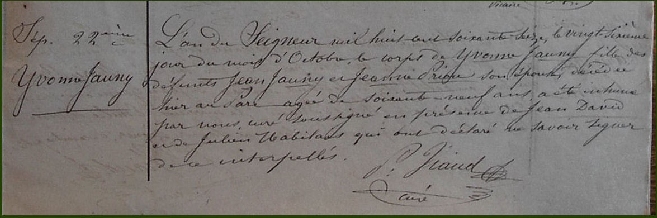 Vicaire
Sép. 22ième
Yvonne Jauny
L'an du Seigneur mil huit cent soixante seize, le vingt sixième
jour du mois d'Octobre le corps de Yvonne Jauny fille des
défunts Jean Jauny et Jeanne son épouse, décédée
hier au soir agée de soixante neuf ans, a été inhumé
par nous, curé soussigné en présence de Jean David
et de Julien qui ont déclaré ne savoir signer
de ce interpellés.
P. Jiaud
curé